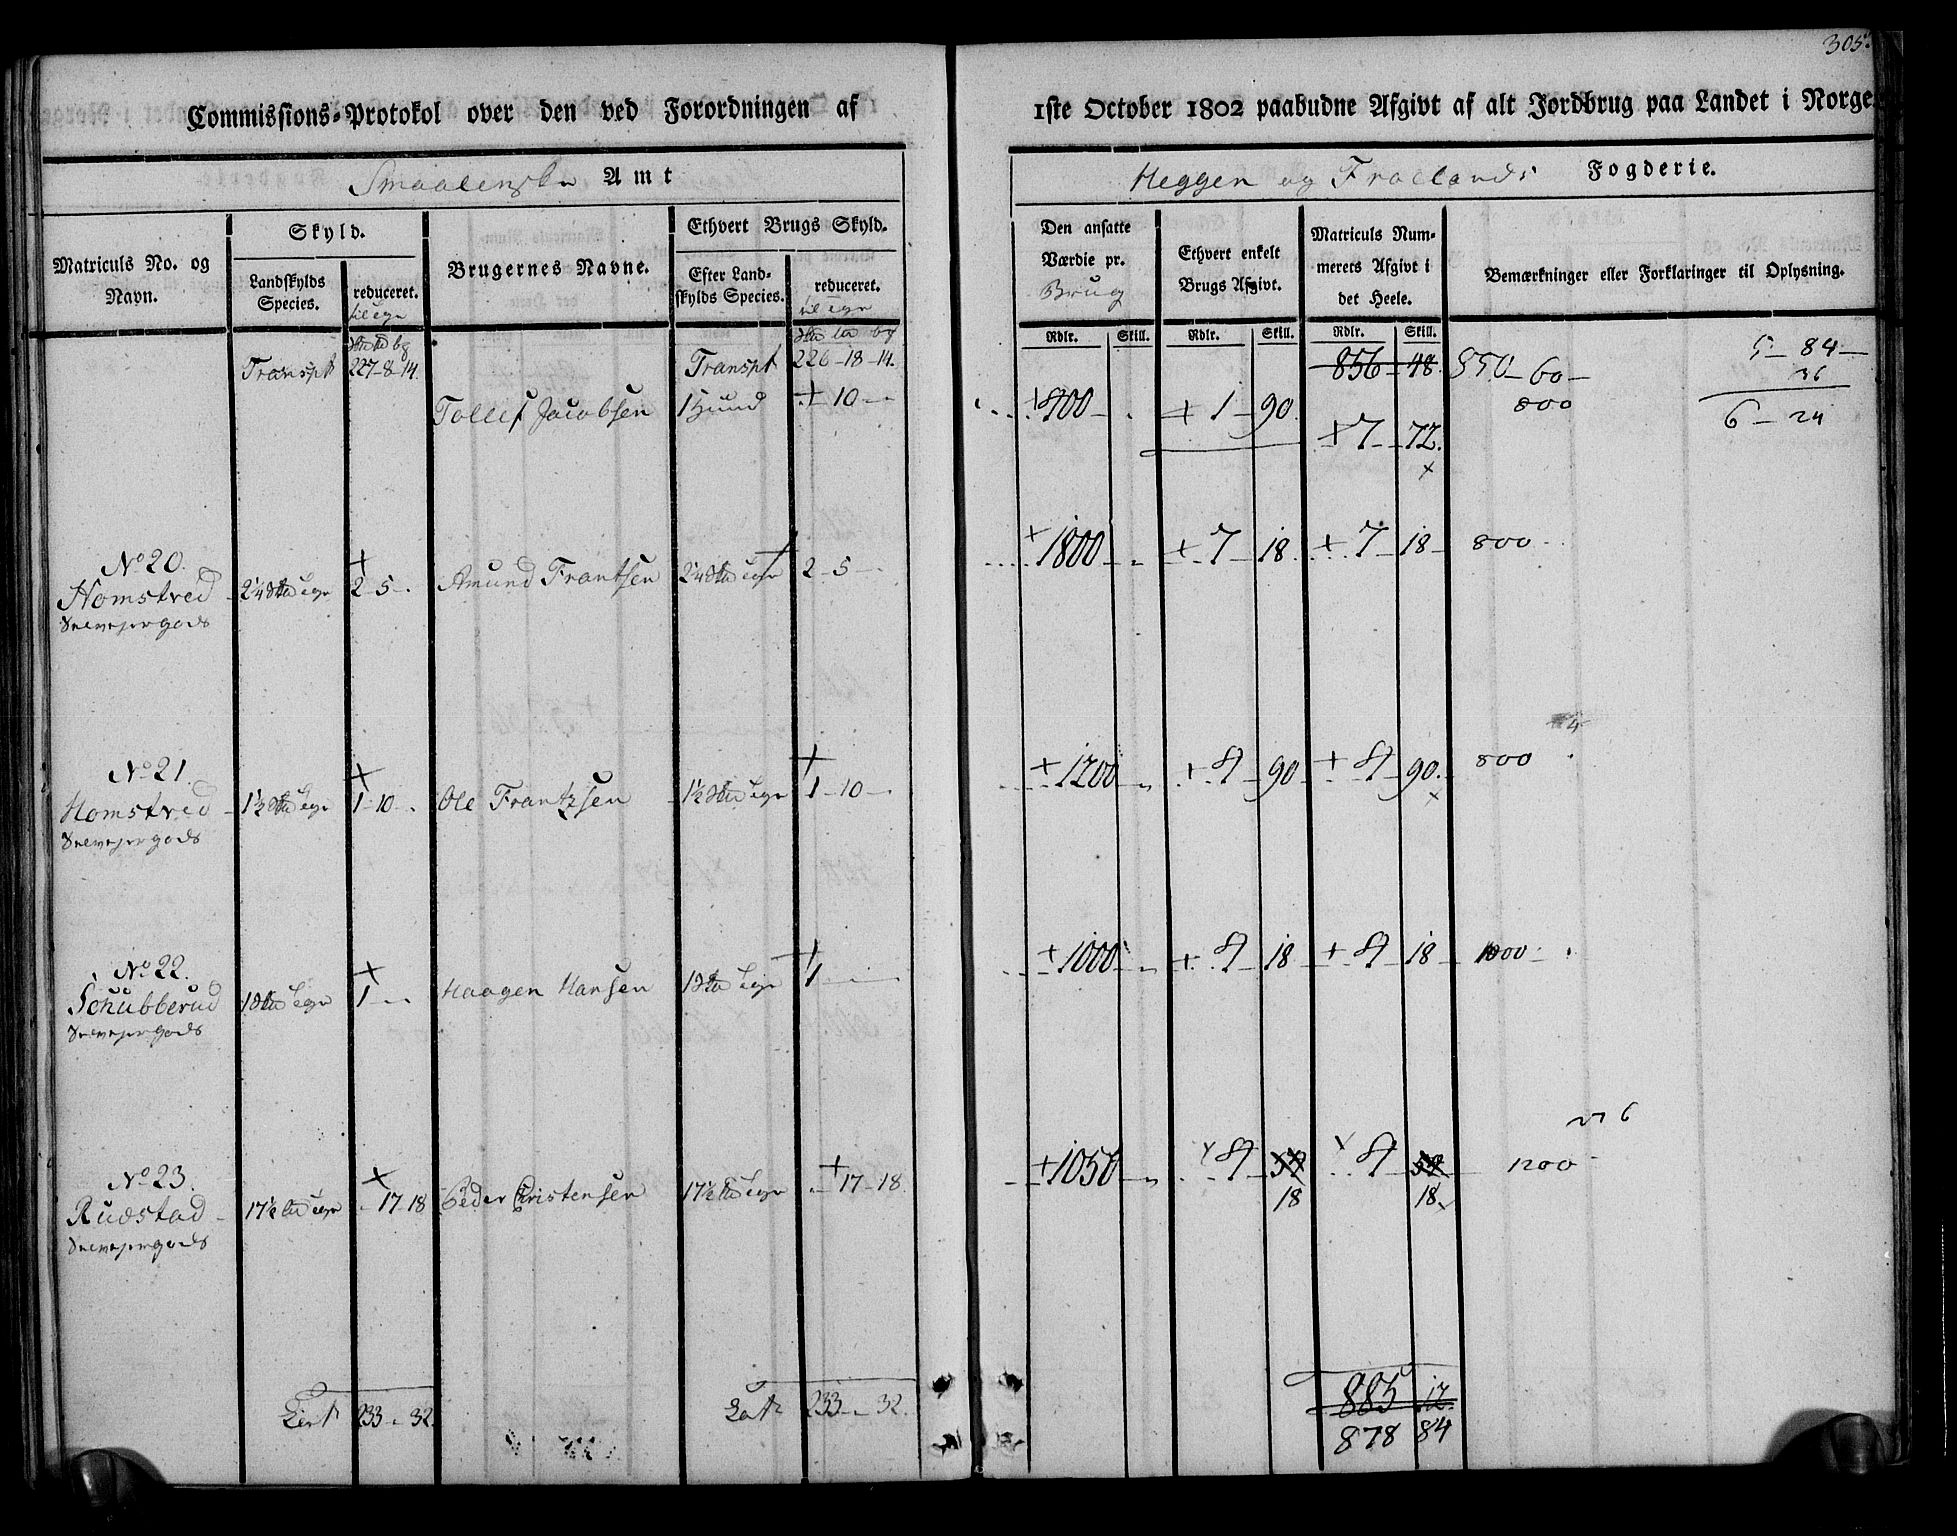 305.
Commissions-Protokol over den ved Forordningen af 1ste October 1802 paabudne Afgivt af alt Jordbrug paa Landet i Norge.
Smaalenske Amt
Heggen og Frøelands Fogderie.
Matriculs No. og Navn.
Skyld.
Landskylds Species.
reduceret.
til
Brugernes Navne.
Ethvert Brugs Skyld.
Efter Landskylds Species.
reduceret.
til
Den ansatte Værdie pr. Brug
Ethvert enkelt Brugs Afgivt.
Matriculs Nummerets Afgivt i det Heele.
Bemærkninger eller Forklaringer til Oplysning.
Rdlr. Skill. Rdlr. Skill. Rdlr. Skill.
Transpt 227-8-14. Transpt 226-18-14. 856-48. 850-60- 5-84-
36
Tollef Jacobsen 1 Hund + 10 - +900 - + 1-90. 800 6-24
+7-72.
No 20.
Homstved 2¼ 2-5 - Amund Frantsen 2¼ 2-5 - +1800 - +7-18. +7-18- 800-
Selvejergods
4
No 21.
Homstved 1½ 1-10 - Ole Frantzsen 1½ 1-10 - +1200 - +4-90 +4-90. 800
Selvejergods
No 22.
Schübberud 1 1 - Haagen Hansen 1 1 - +1000 - +4-18 +4-18 1000-
Selvejergods
6
No 23.
Rudstad 17½ 17-18 Peder Christensen 17½ +17-18. +1050 - 4-54 4-54 1200
18 18
Selvejergods
Lat. 233 - 32. Lat. 233 - 32. 885 12.
878 84